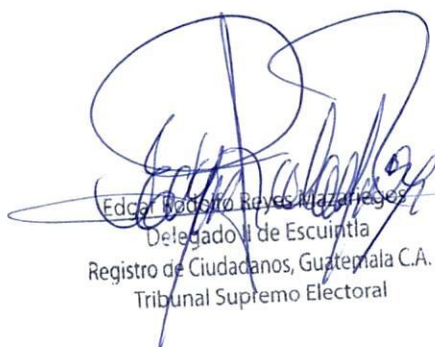 Edgar Rodolfo Reyes Mazariegos
Delegado II de Escuintla
Registro de Ciudadanos, Guatemala C.A.
Tribunal Supremo Electoral